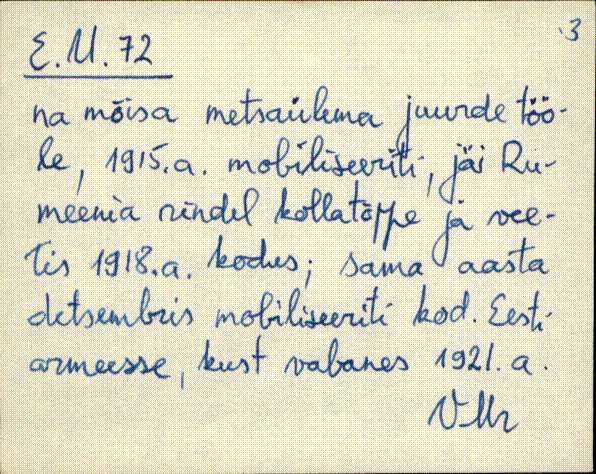 3
E.U. 72
na mõisa metsaülema juurde töö-
le, 1915.a. mobiliseeriti, jäi Ru-
meenia rindel kollatõppe ja vee-
tis 1918.a. kodus; sama aasta
detsembris mobiliseeriti kod. Eesti
armeesse, kust vabanes 1921.a.